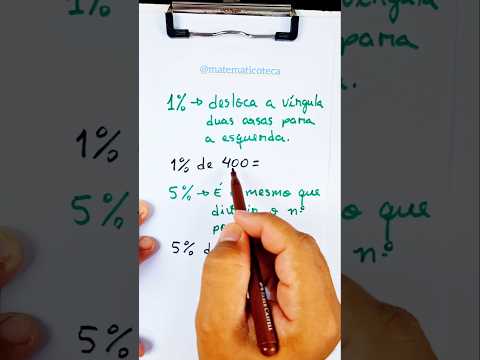 @matematicoteca
1% → desloca a vírgula
duas casas para
a esquerda.
1% de 400 =
5% → É mesmo que
nº
5%